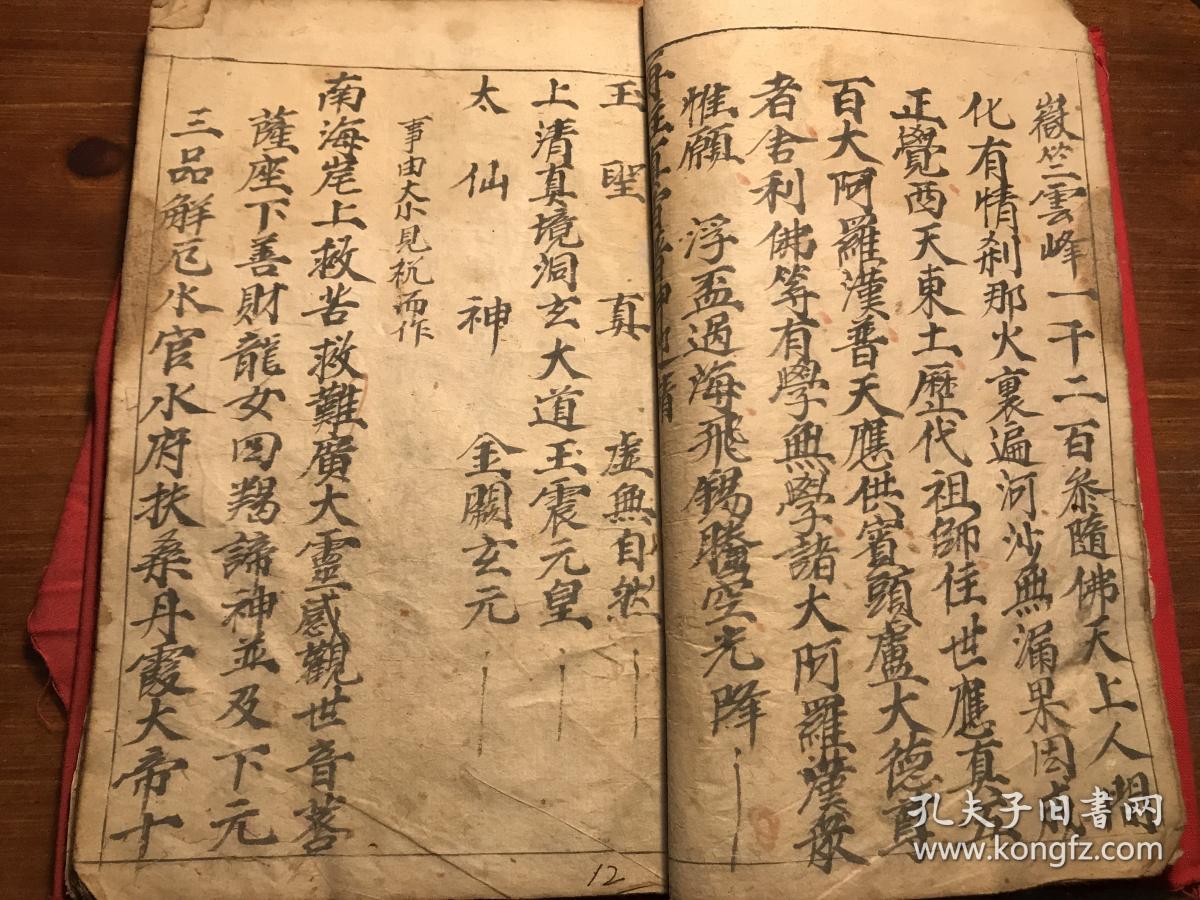 嶽竺雲峰一千二百叅隨佛天上人間
化有情刹那火裏遍河沙無漏果因成
正覺西天東土歷代祖師住世應真
百大阿羅漢普天應供賓頭盧大德
者舎利佛等有學無學諸大阿羅漢衆
惟願 浮盃過海飛錫騰空光降
玉聖真 虛無自然
上清真境洞玄大道玉震元皇
太仙神 金闕玄元
事由大小見机而作
南海岸上救苦救難廣大靈感觀世音菩
薩座下善財龍女囬羯諦神並及下元
三品解厄水官水府扶桑丹霞大帝十
12
孔夫子旧书网
www.kongfz.com